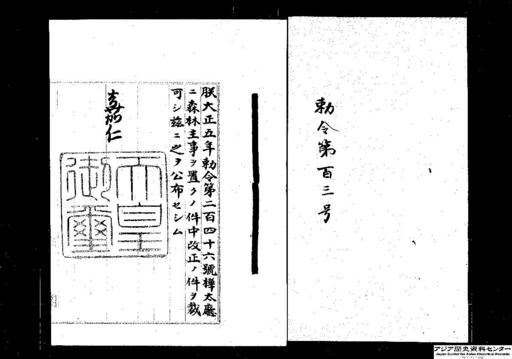 勅令第百三号
朕大正五年勅令第二百四十六號樺太廳
ニ森林主事ヲ置クノ件中改正ノ件ヲ裁
可シ茲ニ之ヲ公布セシム
嘉仁
天皇
御璽
アジア歴史資料センター
Japan Center for Asian Historical Records